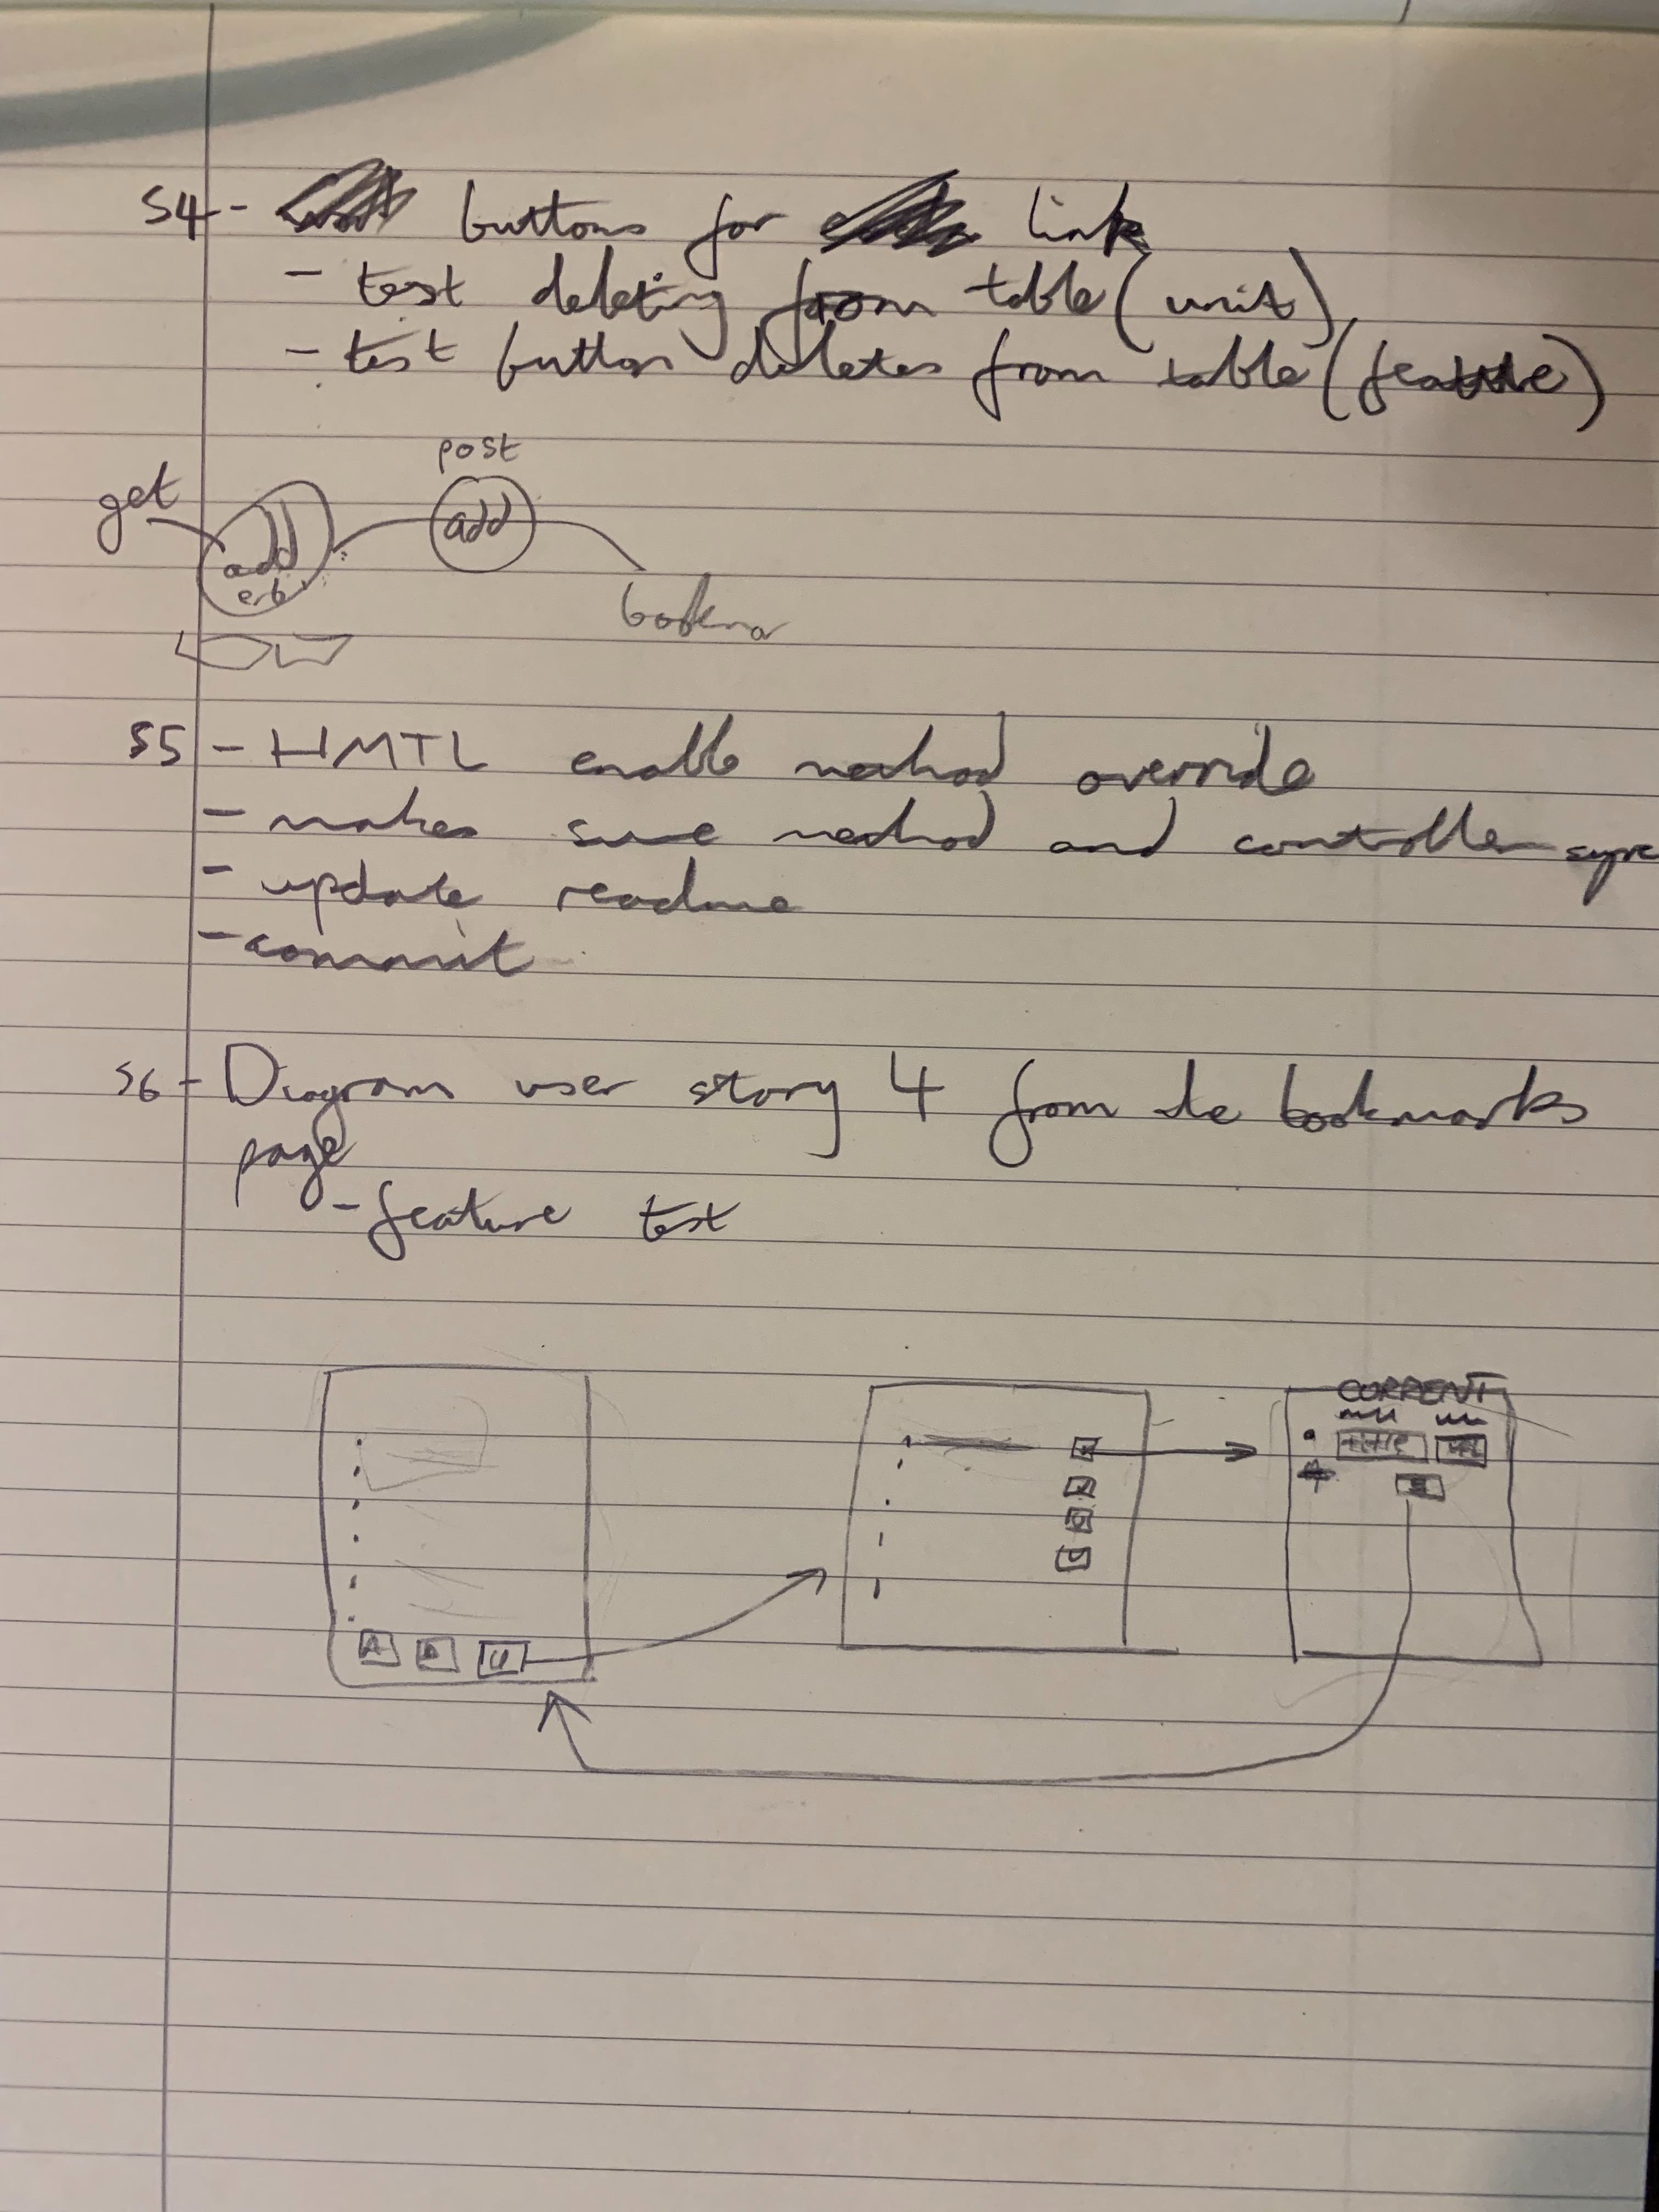 S4 - buttons for link
- test deleting from table (unit)
- test button deletes from table (feature)
post
get
add
add
erb
bookmar
S5 - HMTL enable method override
- makes sure method and controller sync
- update readme
- commit
S6 - Diagram user story 4 from the bookmarks
page
- feature test
CURRENT
title URL
A D U
U